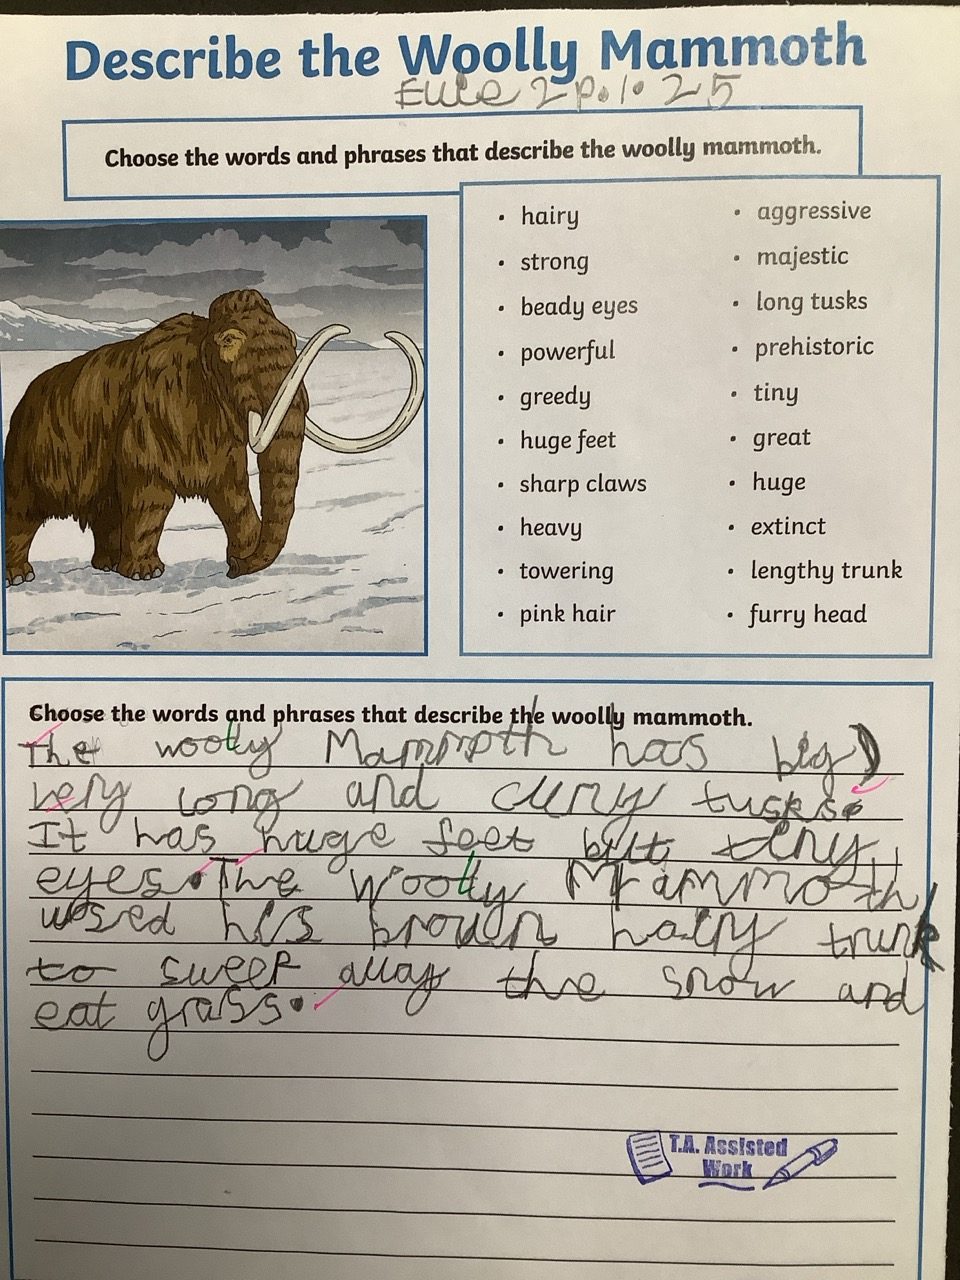 Describe the Woolly Mammoth
2p.1.25
Choose the words and phrases that describe the woolly mammoth.
• hairy
• strong
• beady eyes
• powerful
• greedy
• huge feet
• sharp claws
• heavy
• towering
• pink hair
• aggressive
• majestic
• long tusks
• prehistoric
• tiny
• great
• huge
• extinct
• lengthy trunk
• furry head
Choose the words and phrases that describe the woolly mammoth.
The woolly Mammoth has big,
very long and curvy tusks.
It has huge feet but tiny
eyes. The Woolly Mammoth
used his brown hairy trunk
to sweep away the snow and
eat grass.
T.A. Assisted
Work